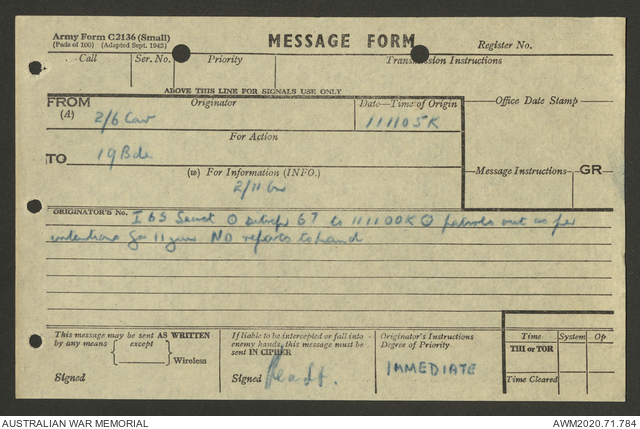 Army Form C2136 (Small)
(Pads of 100) (Adapted Sept. 1943)
MESSAGE FORM
Register No.
Call Ser. No. Priority Transmission Instructions
ABOVE THIS LINE FOR SIGNALS USE ONLY
FROM Originator Date—Time of Origin Office Date Stamp
(A) 2/6 Cav 111105K
For Action
TO 19 Bde
(W) For Information (INFO.) Message Instructions GR
2/11
ORIGINATOR'S No. I 65 Secret O Sitrep 67 to 111100K O patrols out as per
intentions for 11 June NO reports to hand
This message may be sent AS WRITTEN
by any means except
Wireless
Signed
If liable to be intercepted or fall into
enemy hands, this message must be
sent IN CIPHER
Signed
Originator's Instructions
Degree of Priority
IMMEDIATE
Time System Op
THI or TOR
Time Cleared
AUSTRALIAN WAR MEMORIAL AWM2020.71.784